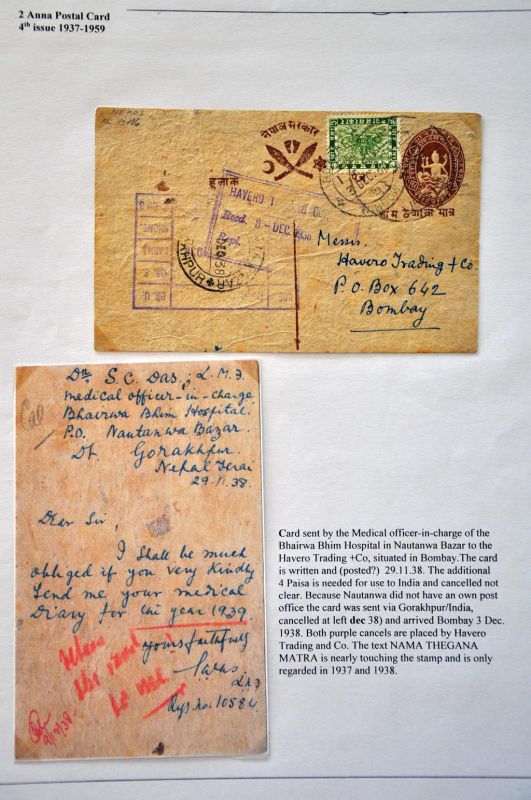 2 Anna Postal Card
4th issue 1937-1959
नेपाल सरकार
हुलाक
HAVERO T
Recd. 8 - DEC. 1938
Repl.
KHPUR
Messrs.
Havero Trading + Co.
P.O. Box 642
Bombay
Dr. S. C. Das, L.M.F.
medical officer-in-charge
Bhairwa Bhim Hospital
P.O. Nautanwa Bazar.
Dt. Gorakhpur.
Nepal Terai
29.11.38.
Dear Sir,
I shall be much
obliged if you very kindly
send me your medical
Diary for the year 1939
yours faithfully
Regs. no. 10584
Card sent by the Medical officer-in-charge of the
Bhairwa Bhim Hospital in Nautanwa Bazar to the
Havero Trading +Co, situated in Bombay.The card
is written and (posted?) 29.11.38. The additional
4 Paisa is needed for use to India and cancelled not
clear. Because Nautanwa did not have an own post
office the card was sent via Gorakhpur/India,
cancelled at left dec 38) and arrived Bombay 3 Dec.
1938. Both purple cancels are placed by Havero
Trading and Co. The text NAMA THEGANA
MATRA is nearly touching the stamp and is only
regarded in 1937 and 1938.